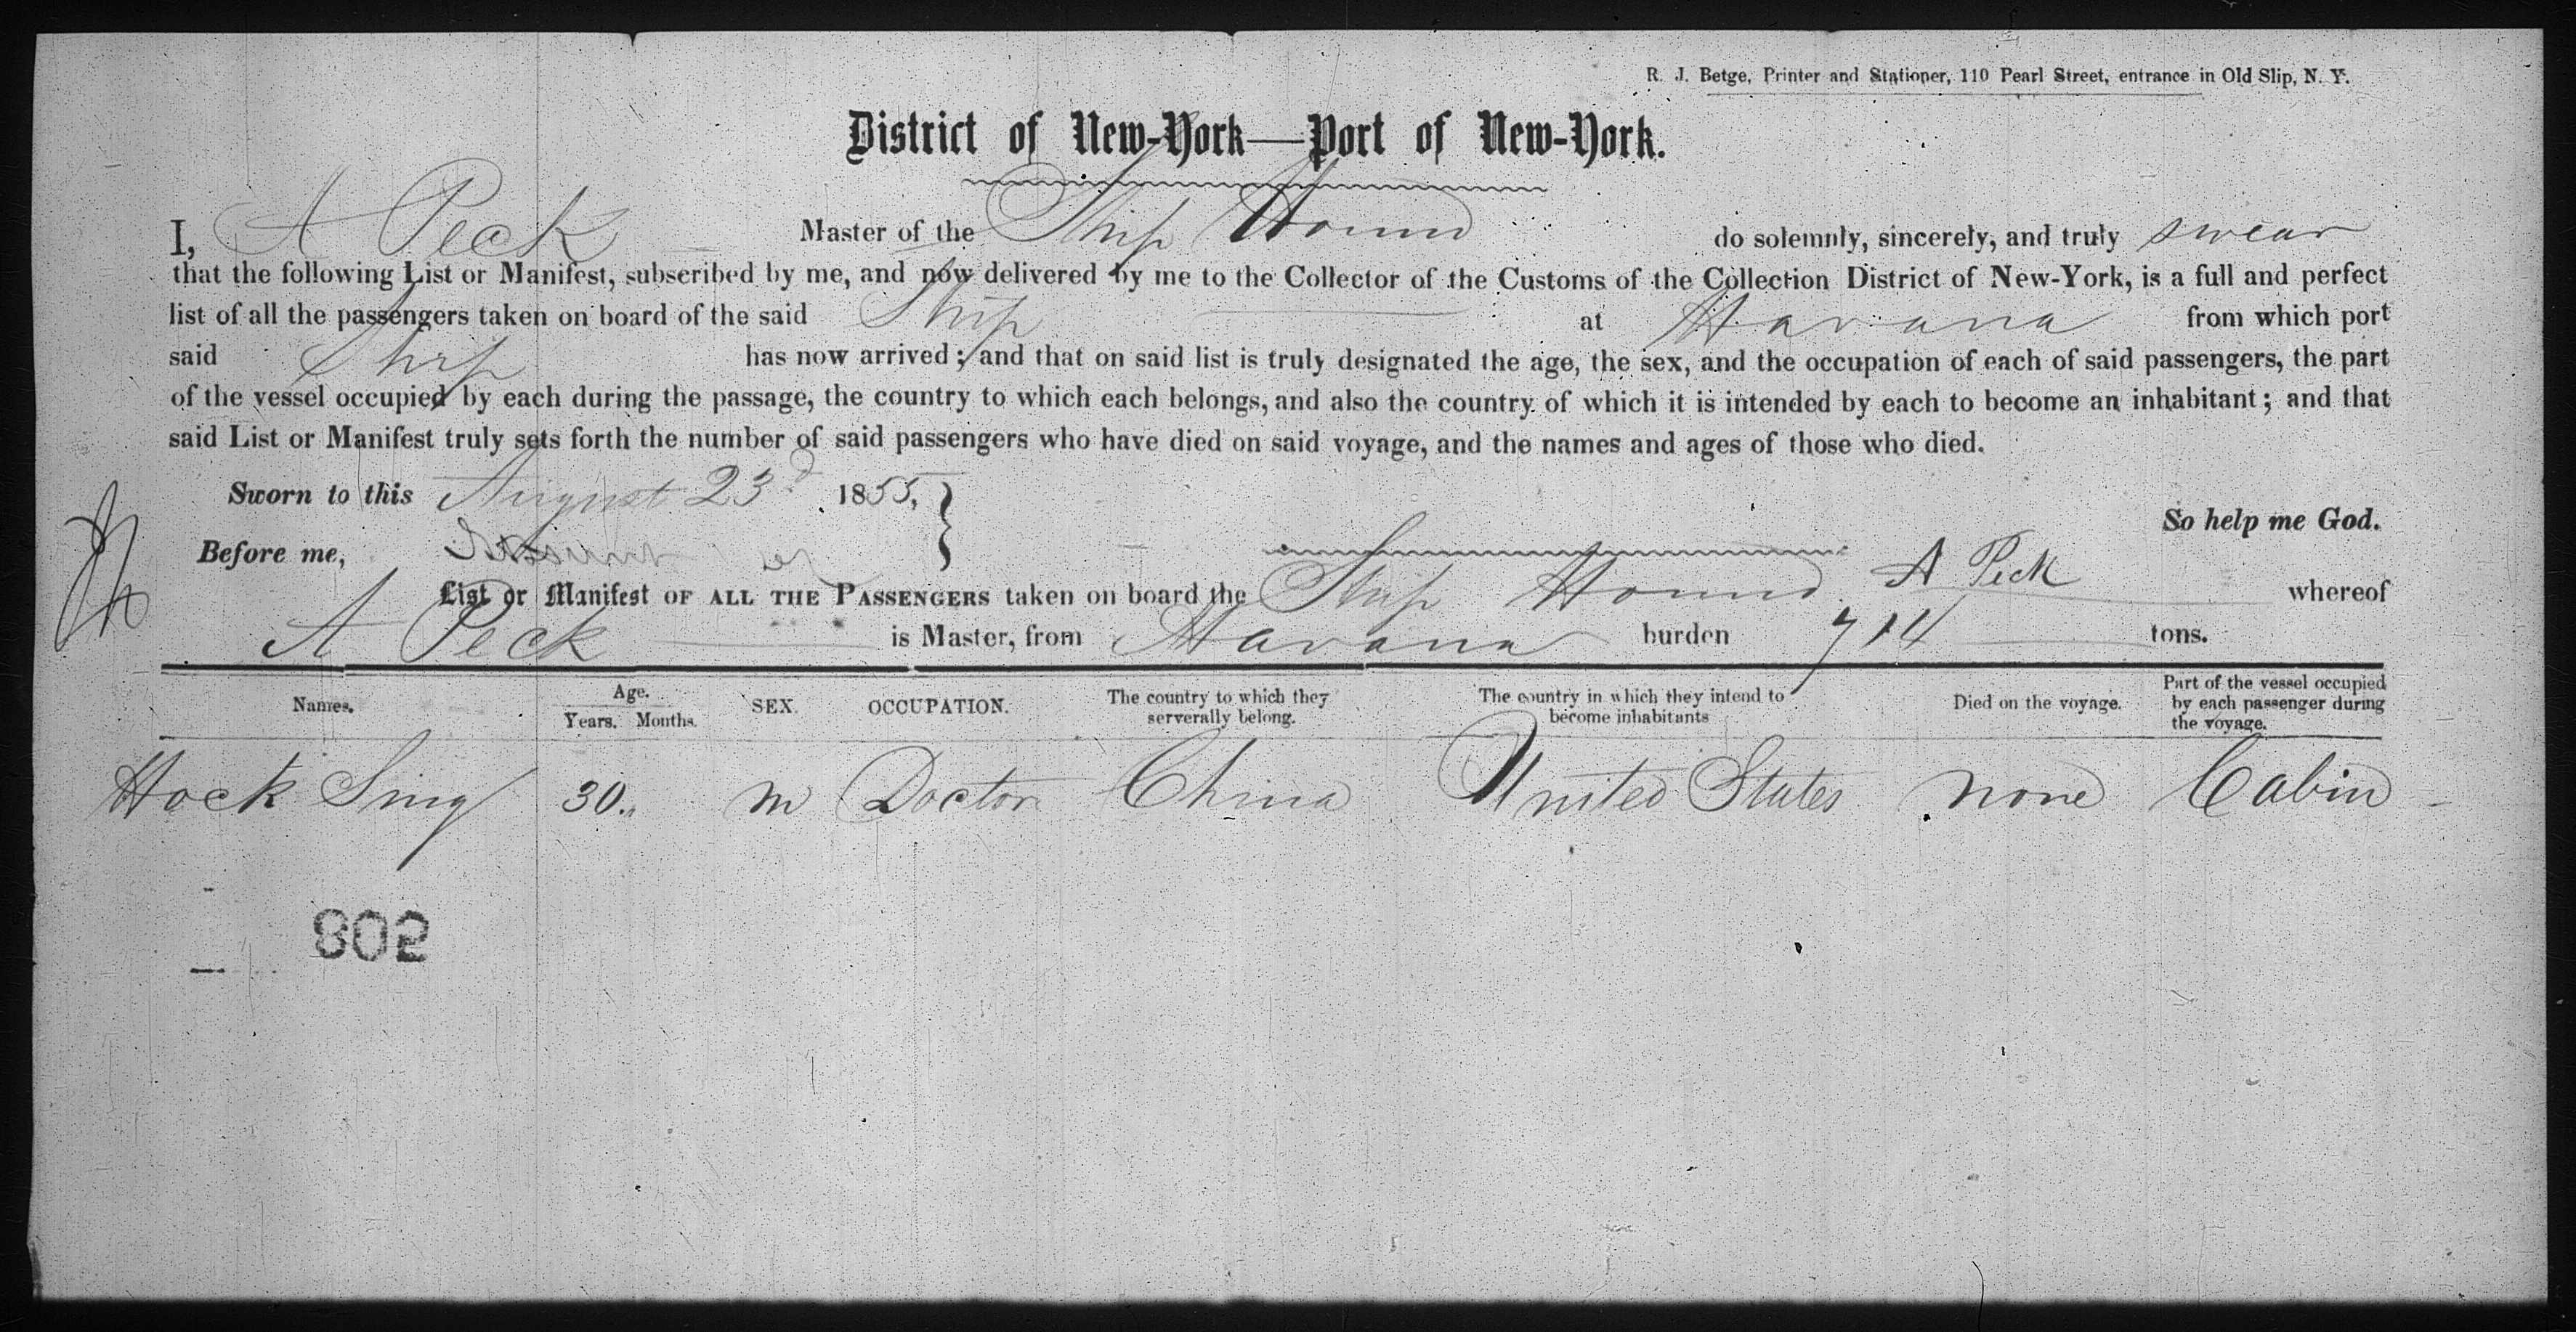 R. J. Betge, Printer and Stationer, 110 Pearl Street, entrance in Old Slip, N. Y.
District of New-York—Port of New-York.
I, A Peck Master of the Ship Hound do solemnly, sincerely, and truly swear
that the following List or Manifest, subscribed by me, and now delivered by me to the Collector of the Customs of the Collection District of New-York, is a full and perfect
list of all the passengers taken on board of the said Ship at Havana from which port
said Ship has now arrived; and that on said list is truly designated the age, the sex, and the occupation of each of said passengers, the part
of the vessel occupied by each during the passage, the country to which each belongs, and also the country of which it is intended by each to become an inhabitant; and that
said List or Manifest truly sets forth the number of said passengers who have died on said voyage, and the names and ages of those who died.
Sworn to this August 23d 1855,
So help me God.
Before me,
A Peck
List or Manifest OF ALL THE PASSENGERS taken on board the Ship Hound whereof
A Peck is Master, from Havana burden 714 tons.
Names. Age. Years. Months. SEX. OCCUPATION. The country to which they serverally belong. The country in which they intend to become inhabitants Died on the voyage. Part of the vessel occupied by each passenger during the voyage.
Hock Sing 30 m Doctor China United States none Cabin
802